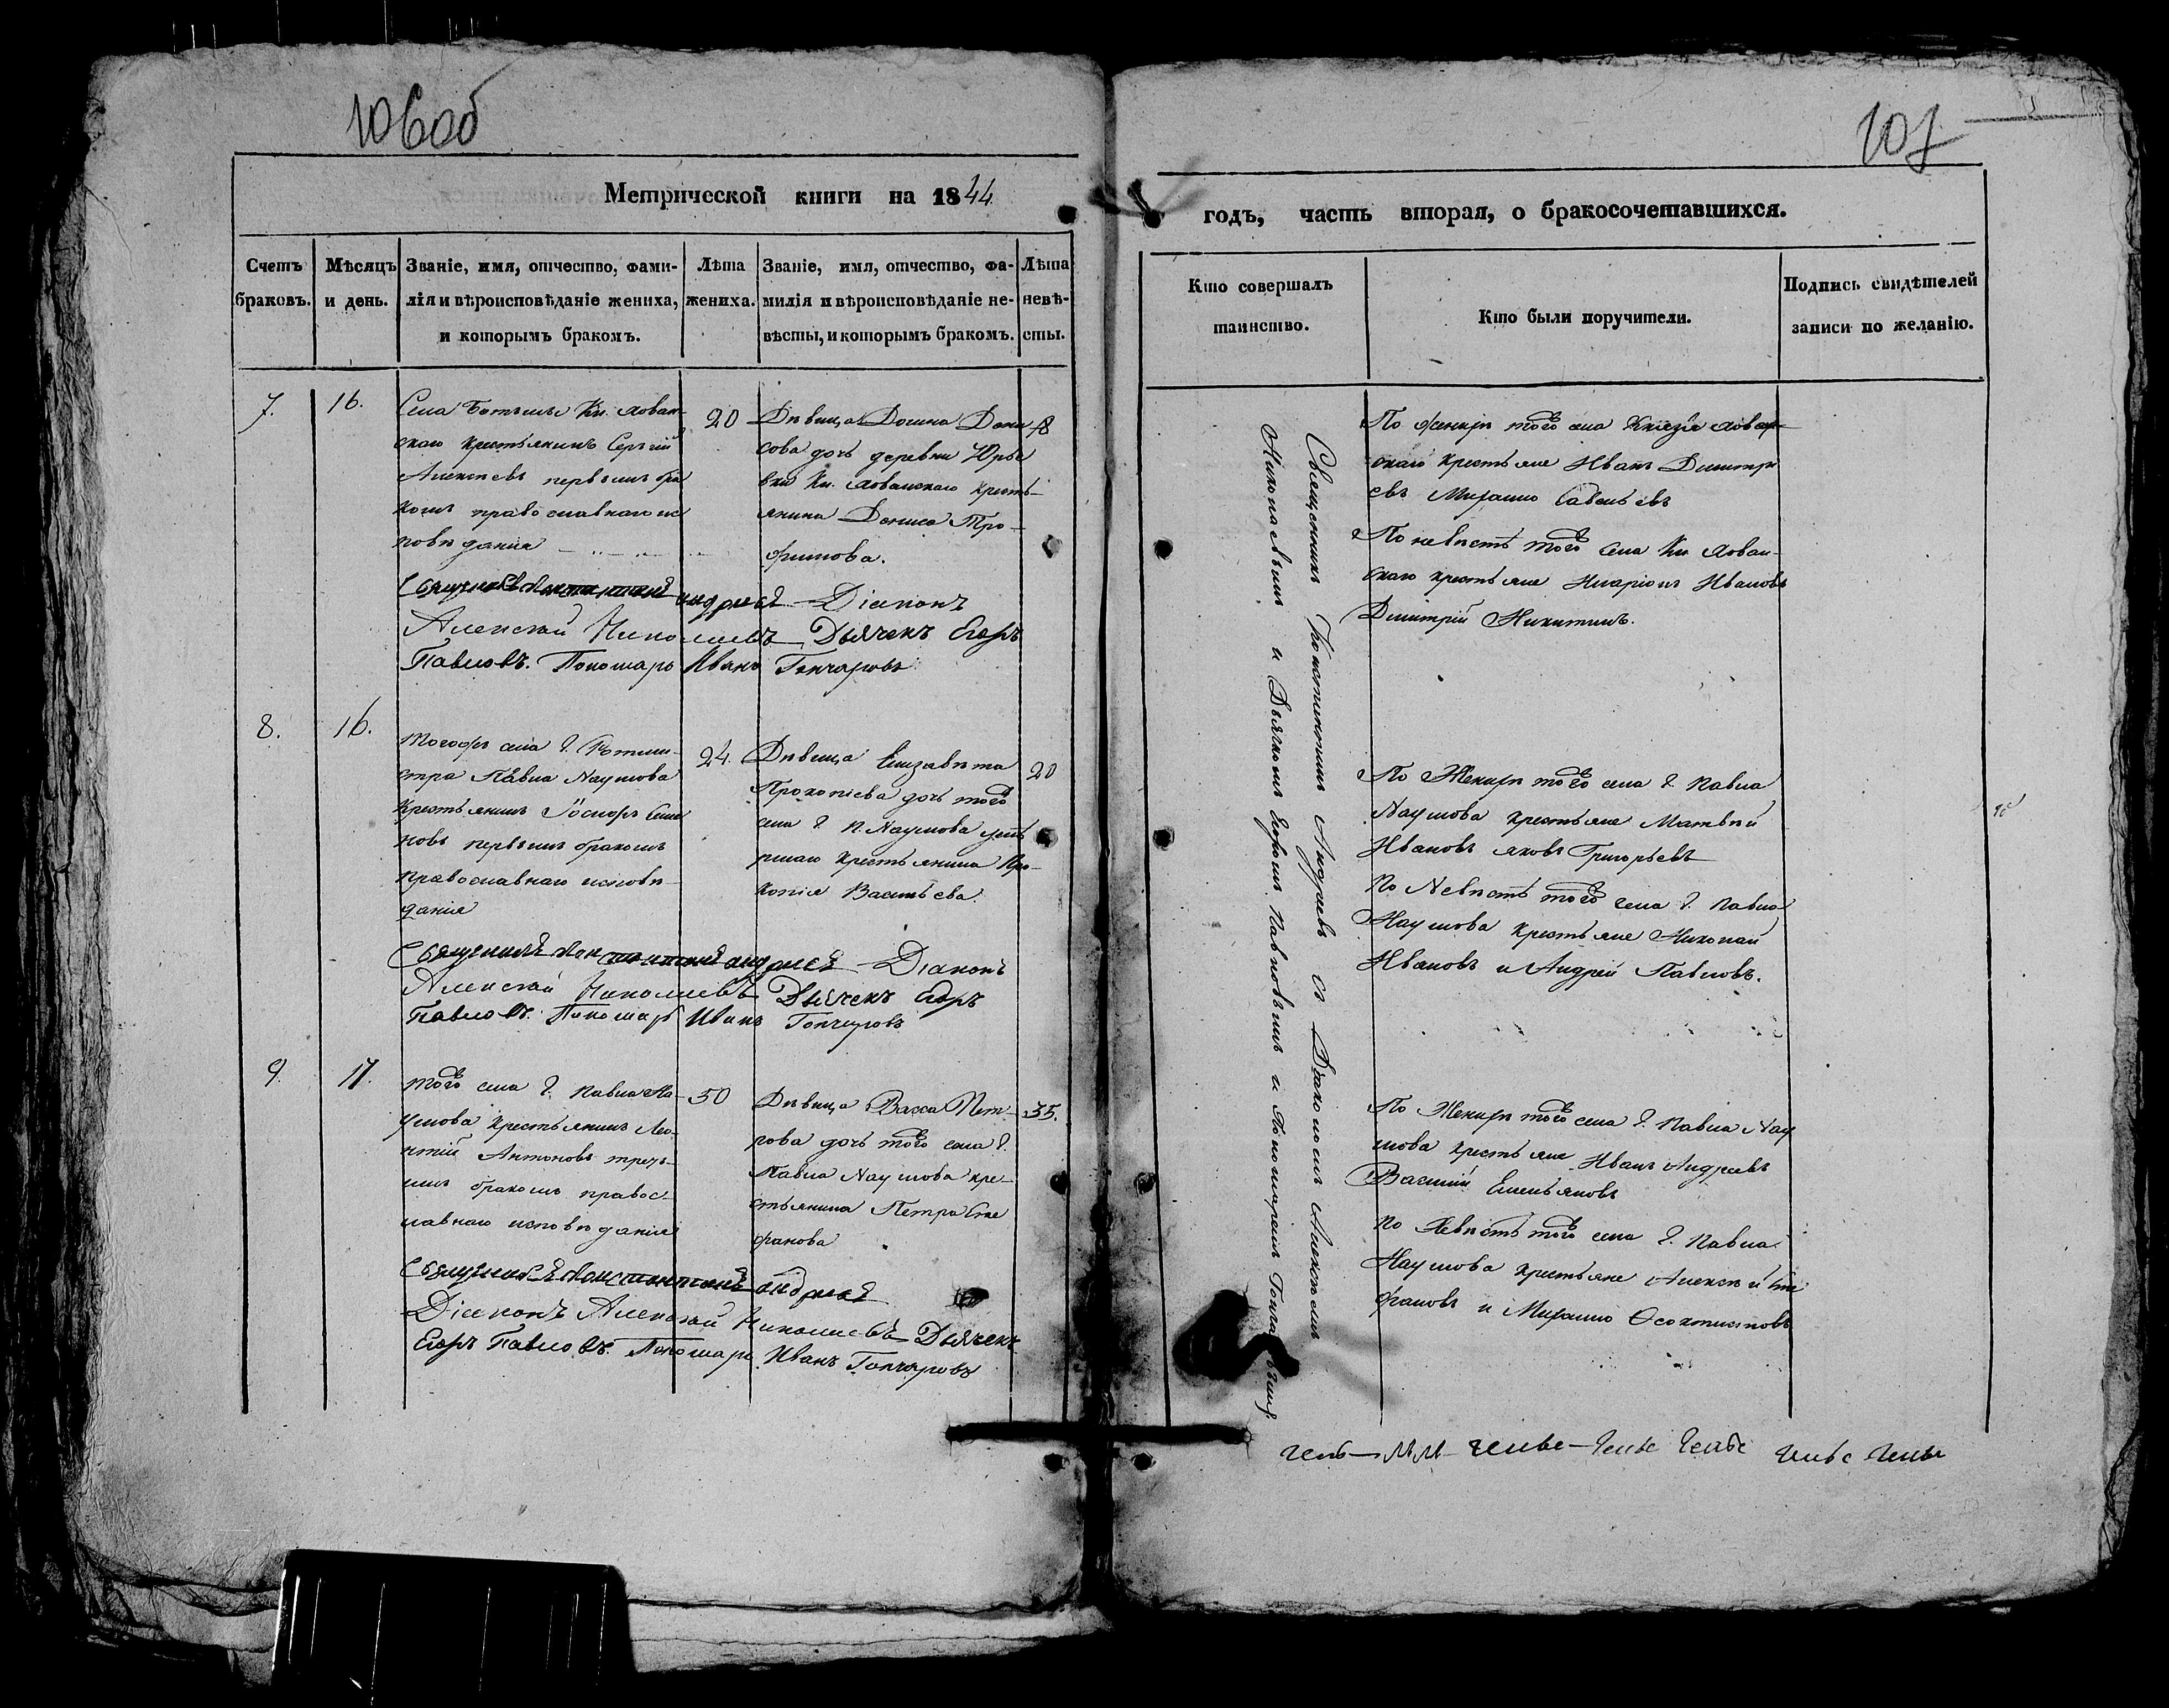 106об
Метрической книги на 1844
Счетъ браковъ.
Мѣсяцъ и день.
Званіе, имя, отчество, фами-
лія и вѣроисповѣданіе жениха,
и которымъ бракомъ.
Лѣта
жениха.
Званіе, имя, отчество, фа-
милія и вѣроисповѣданіе не-
вѣсты, и которымъ бракомъ.
Лѣта
невѣ-
сты.
7.
16.
Села Кн. Хован-
скаго крестьянинъ Сергій
Алексѣевъ первымъ бра
комъ православнаго ис
повѣданія
20
Дѣвица Дени
сова дочь деревни Юрье
вки Кн. Хованскаго кресть-
янина Дениса Тро-
фимова.
18
Священникъ Константинъ Андреевъ Діаконъ
Алексѣй Николаевъ Дьячекъ Егоръ
Павловъ. Пономарь Иванъ Гончаровъ
8.
16.
Тогожъ села Г. Ротми-
стра Павла Наумова
крестьянинъ Іосифъ Семе
новъ первымъ бракомъ
православнаго исповѣ-
данія
24.
Дѣвица Елизавѣта
Прокопіева дочь того
села Г. П. Наумова уме
ршаго крестьянина Про-
копія Васильева.
20
Священникъ Константинъ Андреевъ Діаконъ
Алексѣй Николаевъ Дьячекъ Егоръ
Павловъ. Пономарь Иванъ Гончаровъ
9.
17.
того села Г. Павла На-
умова крестьянинъ Лео-
нтій Антоновъ треть-
имъ бракомъ правос-
лавнаго исповѣданія
50
Дѣвица Васса Пет-
рова дочь того села Г.
Павла Наумова кре-
стьянина Петра Сте
фанова
35.
Священникъ Константинъ Андреевъ
Діаконъ Алексѣй Николаевъ Дьячекъ
Егоръ Павловъ. Пономарь Иванъ Гончаровъ
107
годъ, часть вторая, о бракосочетавшихся.
Кто совершалъ
таинство.
Кто были поручители.
Подпись свидѣтелей
записи по желанію.
Священникъ Константинъ Андреевъ съ Діакономъ Алексѣемъ
Николаевымъ и Дьячкомъ Егоромъ Павловымъ и Пономаремъ
По женихѣ того села Князя Хован-
скаго крестьяне Иванъ Димитрі
евъ Михайло Савельевъ
По невѣстѣ того села Кн Хован-
скаго крестьяне Иларіонъ Ивановъ
Димитрій Никитинъ.
По Женихѣ того села Г. Павла
Наумова крестьяне Матвѣй
Ивановъ Яковъ Григорьевъ
По Невѣстѣ того села Г. Павла
Наумова крестьяне Николай
Ивановъ и Андрей Павловъ.
По Женихѣ того села Г. Павла Нау
мова крестьяне Иванъ Андреевъ
Василій Емельяновъ
По Невѣстѣ того села Г. Павла
Наумова крестьяне Алексѣй Сте
фановъ и Михайло Ѳеоктистовъ